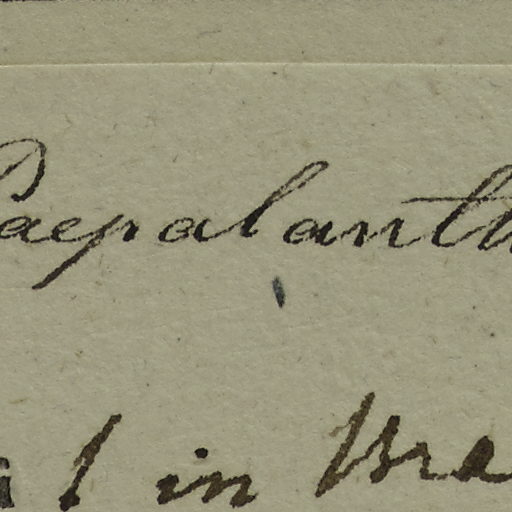 Paepalanth
in Bra